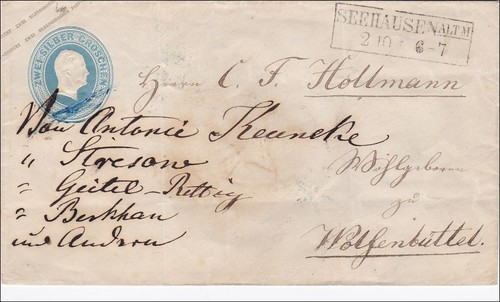 ZWEI SILBER-GROSCHEN
SEEHAUSEN ALTM
2 10 6-7
Herrn C. F. Hollmann
Von Antonie Keuncke
" Stresow
" Geitel-Rettig
" Berkhan
und Andern
Wohlgeboren
zu
Wolfenbüttel.